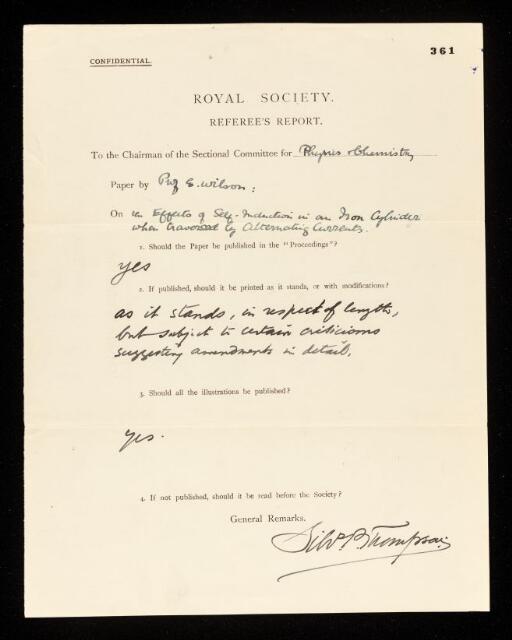 361
CONFIDENTIAL.
ROYAL SOCIETY.
REFEREE'S REPORT.
To the Chairman of the Sectional Committee for Physics & Chemistry
Paper by Prof E. Wilson:
On Effects of Self-Induction in an Iron Cylinder
when traversed by Alternating Currents.
1. Should the Paper be published in the "Proceedings"?
yes
2. If published, should it be printed as it stands, or with modifications?
as it stands, in respect of length,
but subject to certain criticisms
suggesting amendments in detail.
3. Should all the illustrations be published?
yes.
4. If not published, should it be read before the Society?
General Remarks.
Silv. P. Thompson